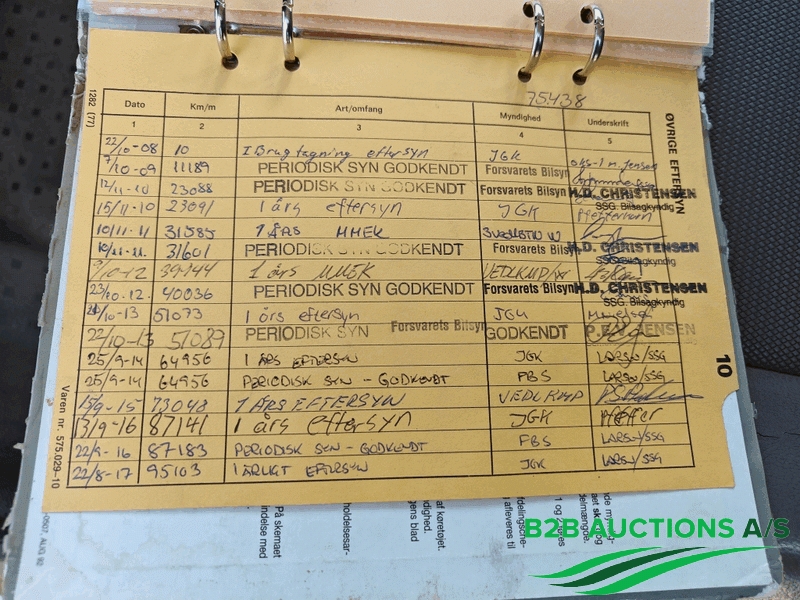 75438
1282 (77)
Dato Km/m Art/omfang Myndighed Underskrift
1 2 3 4 5
ØVRIGE EFTERSYN
22/10-08 10 IBrugtagning eftersyn JGK
/10-09 11189 PERIODISK SYN GODKENDT Forsvarets Bilsyn
12/11-10 23088 PERIODISK SYN GODKENDT Forsvarets Bilsyn H.D. CHRISTENSEN
SSG. Bilsagkyndig
15/11-10 23091 1 års eftersyn JGK
10/11-11 31585 1 ÅRS MMEK
10/11-11. 31601 PERIODISK SYN GODKENDT Forsvarets Bilsyn H.D. CHRISTENSEN
SSG. Bilsagkyndig
/10-12 39944 1 års MMEK
23/10.12. 40036 PERIODISK SYN GODKENDT Forsvarets Bilsyn H.D. CHRISTENSEN
SSG. Bilsagkyndig
/10-13 51073 1 års eftersyn JGK
22/10-13 51089 PERIODISK SYN Forsvarets Bilsyn GODKENDT JENSEN
25/9-14 64956 1 ÅRS EFTERSYN JGK LARSEN/SSG
25/9-14 64956 PERIODISK SYN - GODKENDT FBS LARSEN/SSG
15/9-15 73048 1 ÅRS EFTERSYN VEDLKMP
13/9-16 87141 1 års eftersyn JGK Pfeffer
22/9-16 87183 PERIODISK SYN - GODKENDT FBS LARSEN/SSG
22/8-17 95103 1 ÅRLIGT EFTERSYN JGK LARSEN/SSG
10
Varen nr. 575.029-10
På skemaet
indelse med
holdelsesar-
af køretøjet.
dighed.
gens blad
afleveres til
B2B AUCTIONS A/S